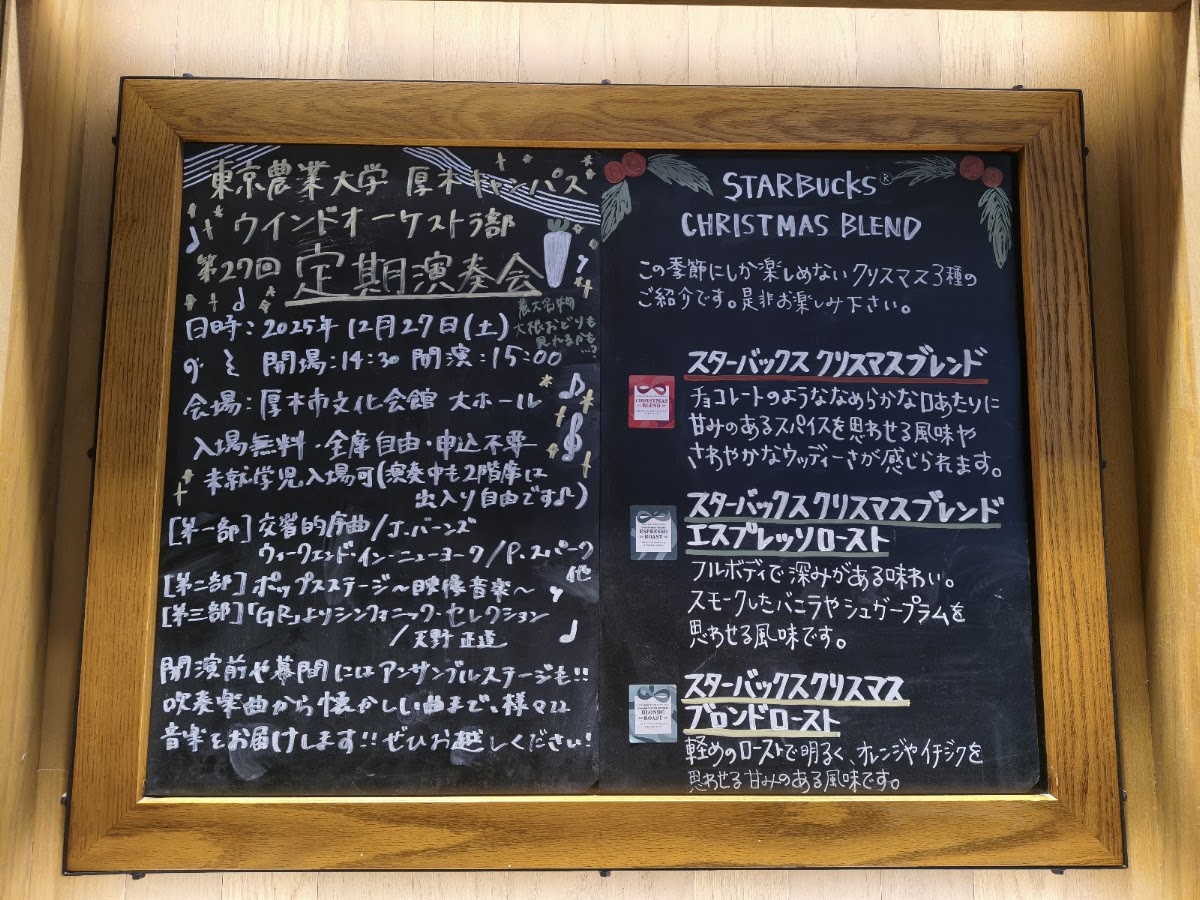 東京農業大学 厚木キャンパス
ウインドオーケストラ部
第27回 定期演奏会
農大名物
大根おどりも
見れるかも
…?
日時：2025年 12月27日(土)
開場：14:30 開演：15:00
会場：厚木市文化会館 大ホール
入場無料・全席自由・申込不要
未就学児入場可(演奏中も2階席は
出入り自由です♪)
[第一部] 交響的序曲/J.バーンズ
ウィークエンド・イン・ニューヨーク/P.スパーク
他
[第二部] ポップスステージ〜映像音楽〜
[第三部]「GR」よりシンフォニック・セレクション
/天野 正道
開演前や幕間にはアンサンブルステージも!!
吹奏楽曲から懐かしい曲まで、様々な
音楽をお届けします!!ぜひお越しください!
STARBUCKS®
CHRISTMAS BLEND
この季節にしか楽しめないクリスマス3種の
ご紹介です。是非お楽しみ下さい。
スターバックス クリスマスブレンド
CHRISTMAS
BLEND
チョコレートのようななめらかな口あたりに
甘みのあるスパイスを思わせる風味や
さわやかなウッディーさが感じられます。
スターバックス クリスマスブレンド
エスプレッソロースト
ESPRESSO
ROAST
フルボディで深みがある味わい。
スモークしたバニラやシュガープラムを
思わせる風味です。
スターバックスクリスマス
ブロンドロースト
BLONDE
ROAST
軽めのローストで明るく、オレンジやイチジクを
思わせる甘みのある風味です。